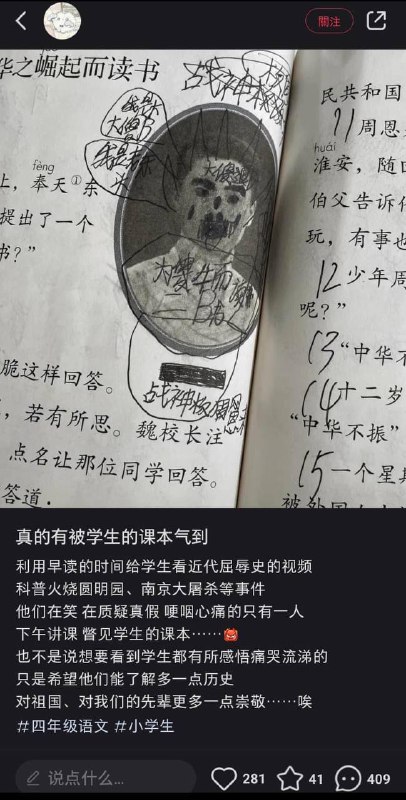 關注
华之崛起而读书
民共和国
11周恩
huái
淮安，随
伯父告诉
玩，有事也
12少年周
呢？”
13“中华不
14十二岁
“中华不振”
15一个星
被外国
fèng
上，奉天①东
提出了一个
书？”
脆这样回答。
，若有所思。魏校长注
点名让那位同学回答。
答道.
大傻
占战神
真的有被学生的课本气到
利用早读的时间给学生看近代屈辱史的视频
科普火烧圆明园、南京大屠杀等事件
他们在笑 在质疑真假 哽咽心痛的只有一人
下午讲课 瞥见学生的课本……
也不是说想要看到学生都有所感悟痛哭流涕的
只是希望他们能了解多一点历史
对祖国、对我们的先辈更多一点崇敬……唉
#四年级语文 #小学生
说点什么...
281
41
409